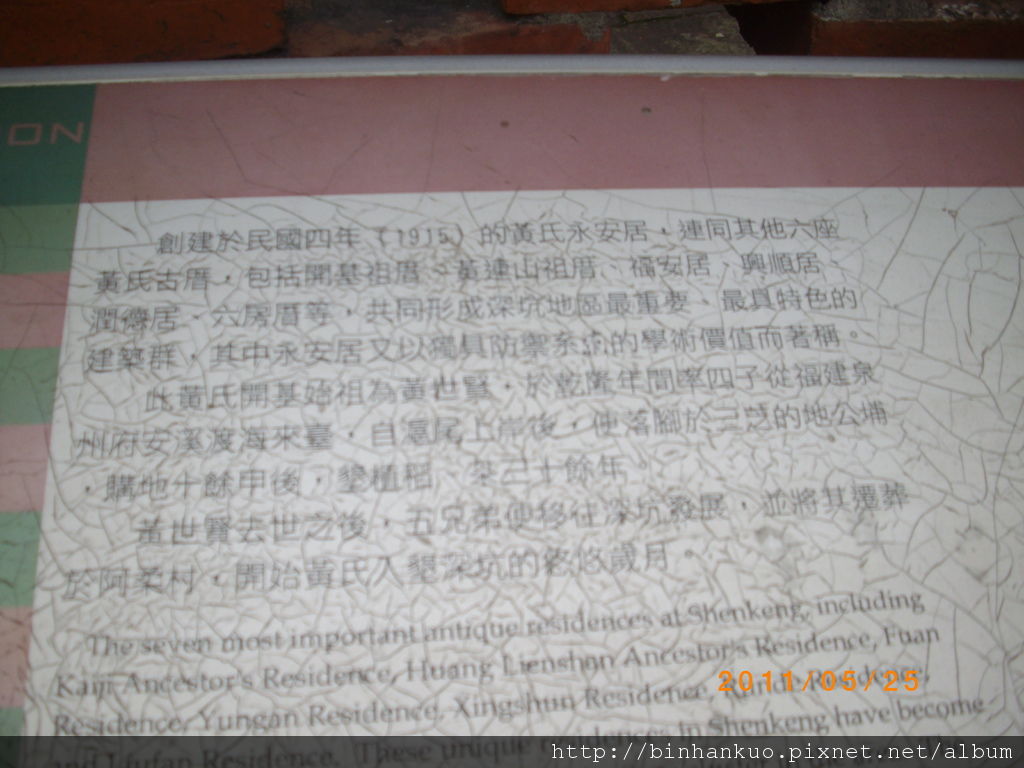 ON
創建於民國四年（1915）的黃氏永安居，連同其他六座
黃氏古厝，包括開基祖厝、黃連山祖厝、福安居、興順居、
潤德居、六房厝等，共同形成深坑地區最重要、最具特色的
建築群，其中永安居又以獨具防禦系統的學術價值而著稱。
此黃氏開基始祖為黃世賢，於乾隆年間率四子從福建泉
州府安溪渡海來臺，自滬尾上岸後，便落腳於三芝的地公埔
，購地十餘甲後，墾植稻、茶三十餘年。
黃世賢去世之後，五兄弟便移往深坑發展，並將其遷葬
於阿柔村，開始黃氏入墾深坑的悠悠歲月。
The seven most important antique residences at Shenkeng, including
Kaiji Ancestor's Residence, Huang Lienshan Ancestor's Residence, Fuan
Residence, Yungan Residence, Xingshun Residence, Residence,
and Liufan Residence. These unique residences in Shenkeng have become
2011/05/25
http://binhankuo.pixnet.net/album